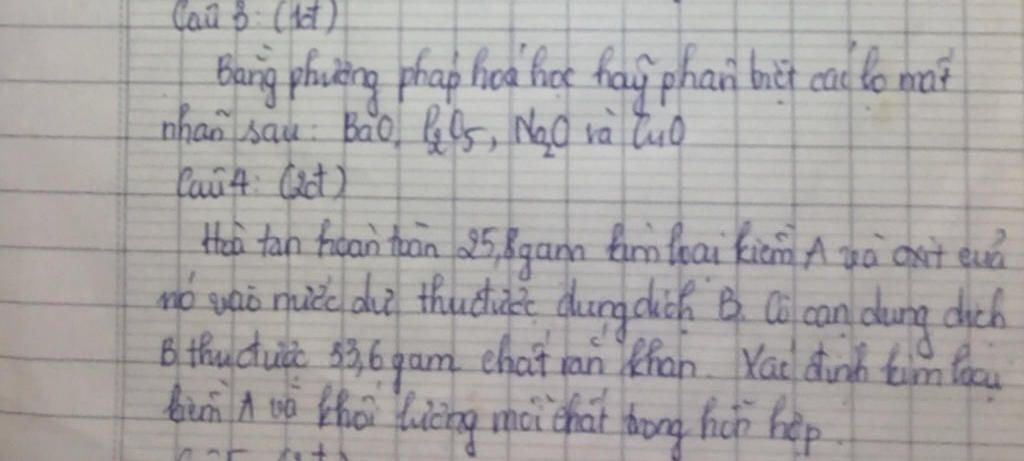 Câu 3: (1đ)
Bằng phương pháp hoá học hãy phân biệt các lọ mất
nhãn sau: BaO, P2O5, Na2O và CuO
Câu 4: (2đ)
Hoà tan hoàn toàn 25,8gam kim loại kiềm A và oxit của
nó vào nước dư thu được dung dịch B. Cô cạn dung dịch
B thu được 33,6 gam chất rắn khan. Xác định kim loại
kiềm A và khối lượng mỗi chất trong hỗn hợp.